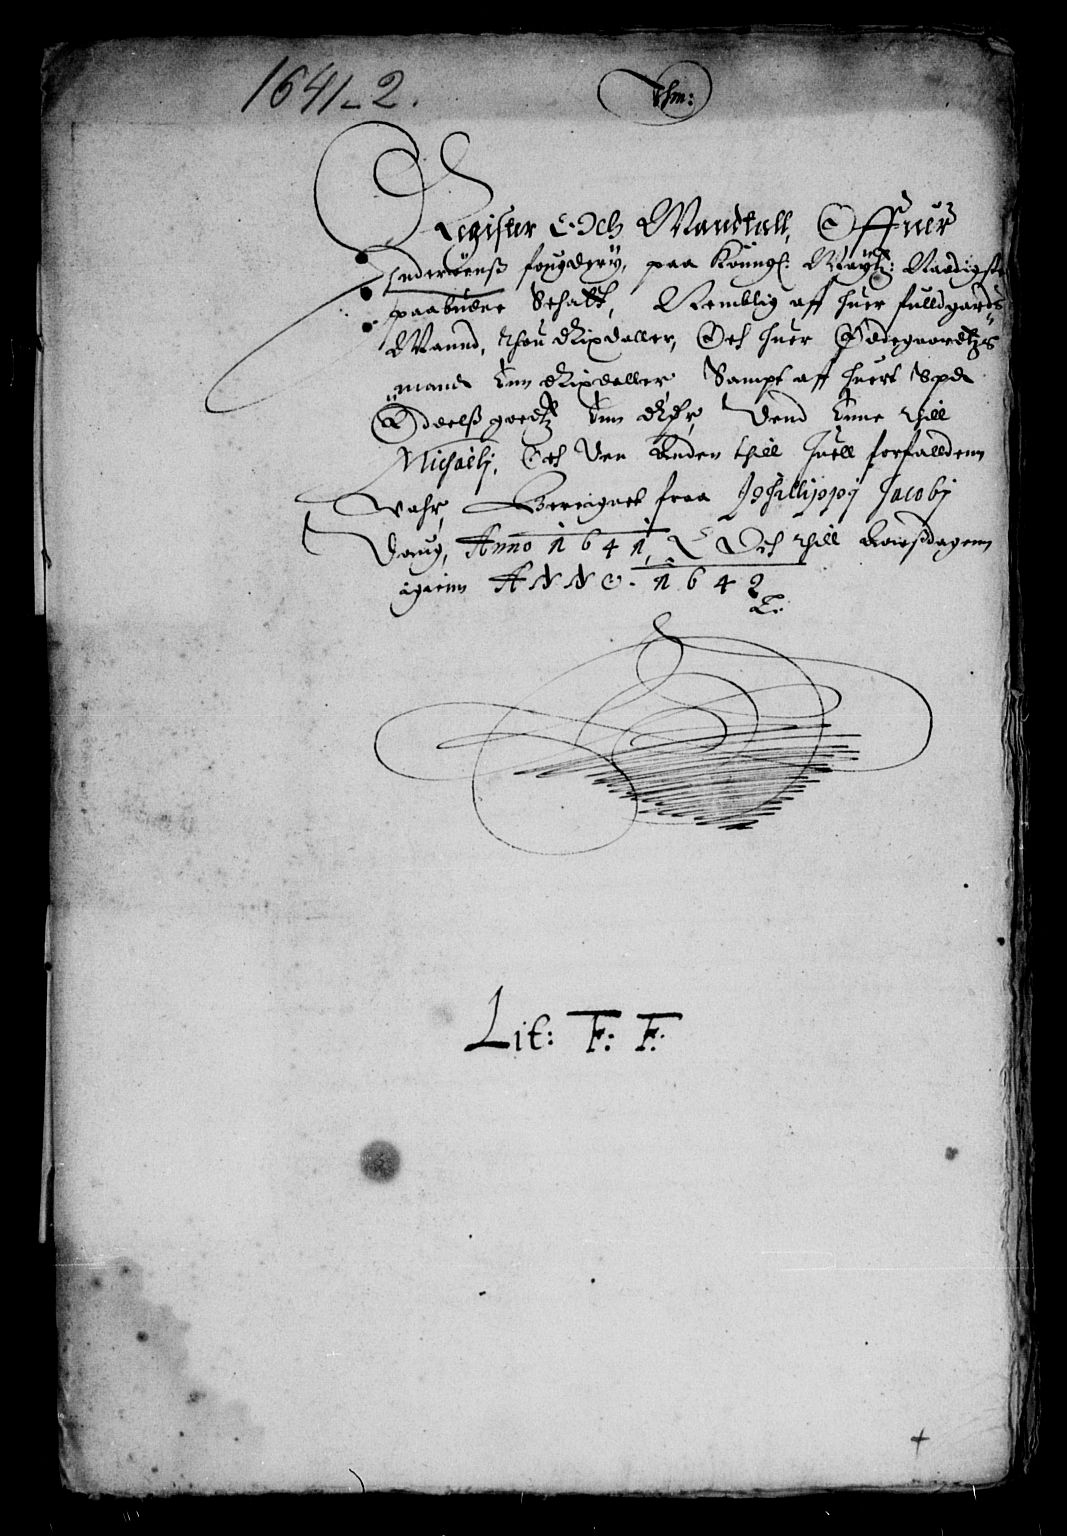 1641-2.
Thm:
Register Och Mandtall, Offuer
Inderøens fougderij, paa Kongl: Maytz: Naadigste
paabudne Schatt, Nemblig aff huer fulldgaards
Mannd, Thou Rixdaller, Och huer Ødegaardtzs
mand Enn Rixdaller Sampt aff huert Spd
Odelss goedtz Enn Rdr, Dend Enne thill
Michaelj, Och den Anden thill Juell forfalldenn
vahr, Beregnet fraa Phillippj Jacobj
Daug, Anno 1641, Och thill Aarssdagenn
igienn ANNO. 1642
Lit: F: F: